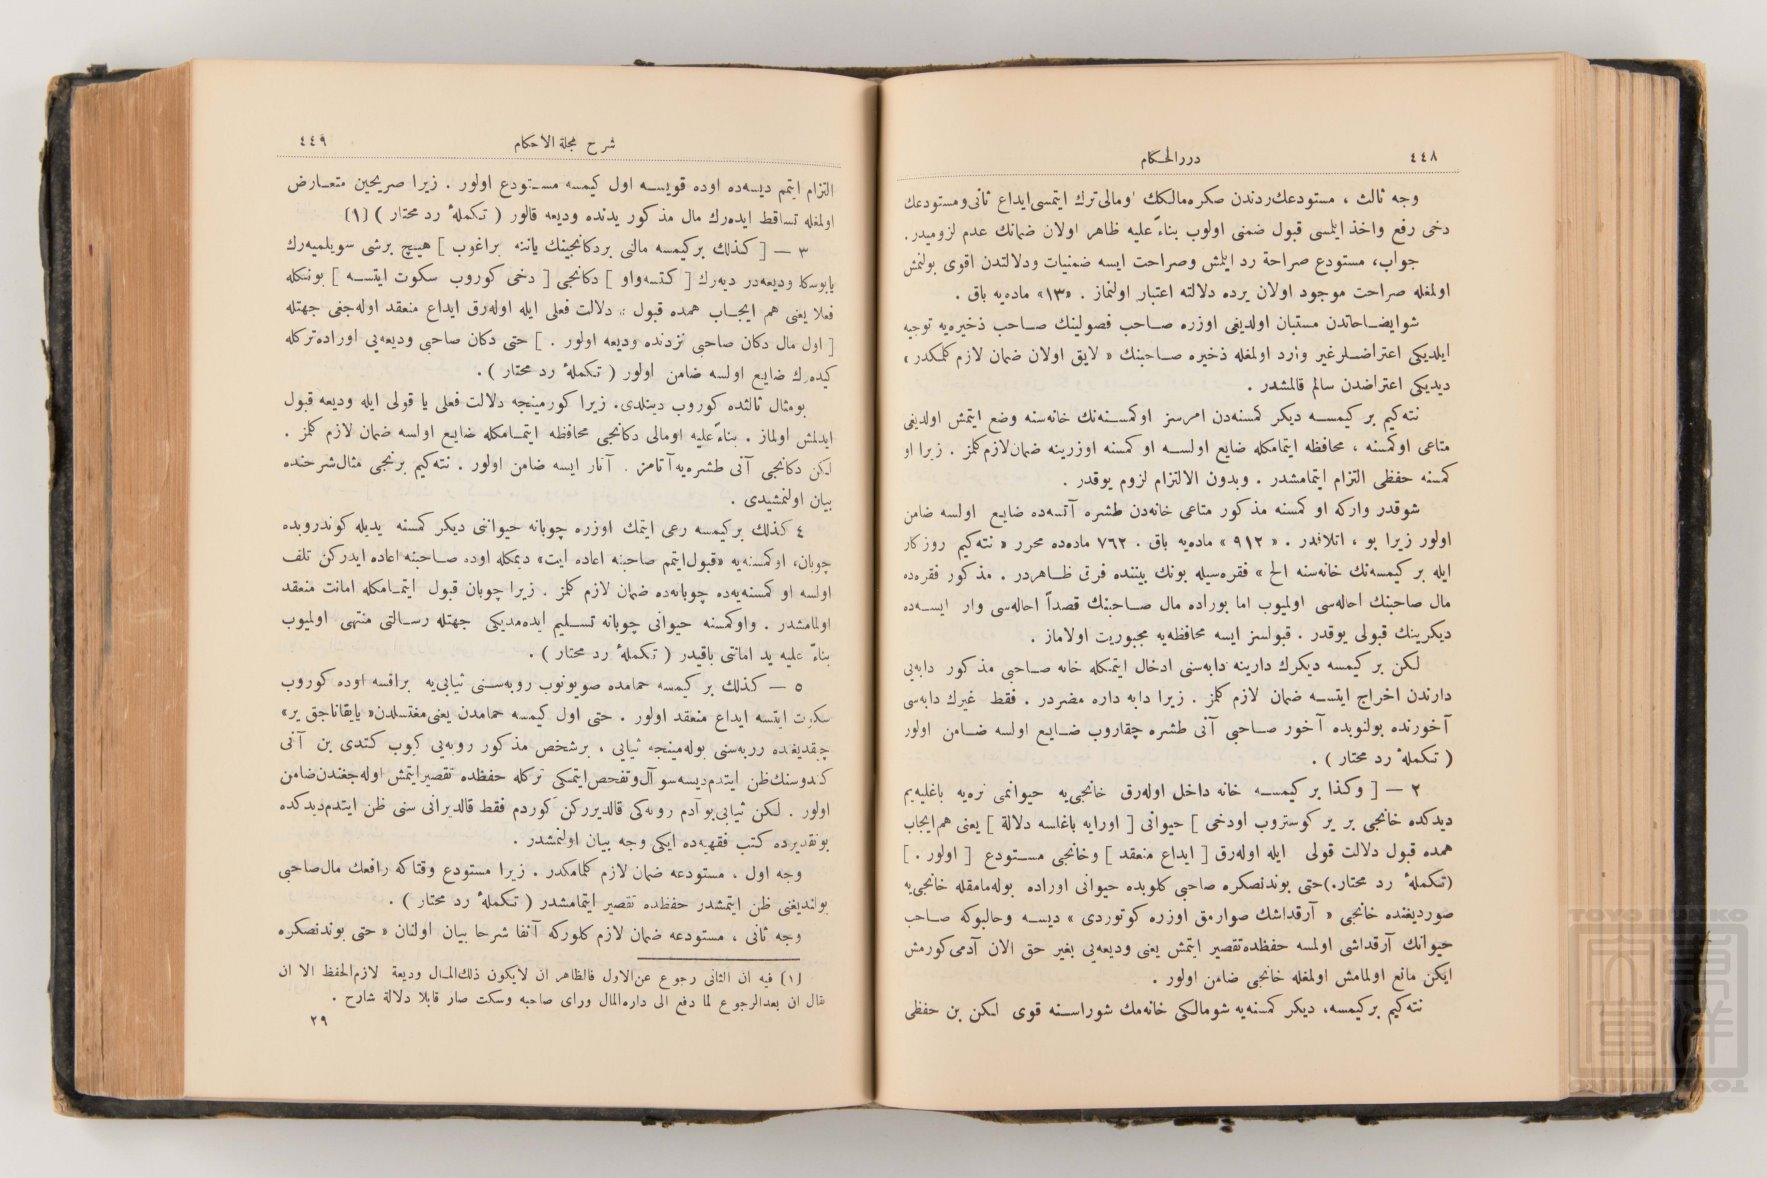 ٤٤٨
دررالحكام
وجه ثالث ، مستودعك ردندن صكره مالكك اومالى ترك ايتمسى ايداع ثانى ومستودعك
دخى رفع واخذ ايلمسى قبول ضمنى اولوب بناءً عليه ظاهر اولان ضمانك عدم لزوميدر.
جواب، مستودع صراحة رد ايلمش وصراحت ايسه ضمنيات ودلالتدن اقوى بولنمش
اولمغله صراحت موجود اولان يرده دلالته اعتبار اولنماز . «١٣» ماده‌يه باق .
شوايضاحاتدن مستبان اولديغى اوزره صاحب فصولينك صاحب ذخيره‌يه توجيه
ايلديكى اعتراضلر غير وارد اولمغله ذخيره صاحبنك « لايق اولان ضمان لازم كلمكدر »
ديديكى اعتراضدن سالم قالمشدر .
نته‌كيم بر كيمسه ديكر كمسنه‌دن امرسز اوكمسنه‌نك خانه‌سنه وضع ايتمش اولديغى
متاعى اوكمسنه ، محافظه ايتمامكله ضايع اولسه او كمسنه اوزرينه ضمان لازم كلمز . زيرا او
كمسنه حفظى التزام ايتمامشدر . وبدون الالتزام لزوم يوقدر .
شوقدر واركه او كمسنه مذكور متاعى خانه‌دن طشره آتسه‌ده ضايع اولسه ضامن
اولور زيرا بو ، اتلافدر . « ٩١٢ » ماده‌يه باق . ٧٦٢ ماده‌ده محرر « نته‌كيم روزكار
ايله بر كيمسه‌نك خانه‌سنه الخ » فقره‌سيله بونك بيننده فرق ظاهردر . مذكور فقره‌ده
مال صاحبنك احاله‌سى اولميوب اما بوراده مال صاحبنك قصداً احاله‌سى وار ايسه‌ده
ديكرينك قبولى يوقدر . قبولسز ايسه محافظه‌يه مجبوريت اولاماز .
لكن بر كيمسه ديكرك دارينه دابه‌سنى ادخال ايتمكله خانه صاحبى مذكور دابه‌يى
داردن اخراج ايتسه ضمان لازم كلمز . زيرا دابه داره مضردر . فقط غيرك دابه‌سى
آخورنده بولنوبده آخور صاحبى آنى طشره چقاروب ضايع اولسه ضامن اولور
( تكملهٔ رد محتار ) .
٢ — [ وكذا بر كيمسه خانه داخل اوله‌رق خانجى‌يه حيوانمى نره‌يه باغليه‌يم
ديدكده خانجى بر ير كوستروب اودخى ] حيوانى [ اورايه باغلسه دلالة ] يعنى هم ايجاب
همده قبول دلالت قولى ايله اوله‌رق [ ايداع منعقد ] وخانجى مستودع [ اولور . ]
(تكملهٔ رد محتار.) حتى بوندنصكره صاحبى كلوبده حيوانى اوراده بوله‌مامقله خانجى‌يه
صورديغنده خانجى « آرقداشك صوارمق اوزره كوتوردى » ديسه وحالبوكه صاحب
حيوانك آرقداشى اولمسه حفظده تقصير ايتمش يعنى وديعه‌يى بغير حق الان آدمى كورمش
ايكن مانع اولمامش اولمغله خانجى ضامن اولور .
نته‌كيم بر كيمسه، ديكر كمسنه‌يه شو مالكى خانه‌مك شوراسنه قوى لكن بن حفظى
شرح مجلة الاحكام
٤٤٩
التزام ايتمم ديسه‌ده اوده قويسه اول كيمسه مستودع اولور . زيرا صريحين متعارض
اولمغله تساقط ايده‌رك مال مذكور يدنده وديعه قالور ( تكملهٔ رد محتار ) (١)
٣ — [ كذلك بر كيمسه مالنى بر دكانجينك ياننه براغوب ] هيچ برشى سويلميه‌رك
يابوسكا وديعه‌در ديه‌رك [ كتسه واو ] دكانجى [ دخى كوروب سكوت ايتسه ] بوشكله
فعلا يعنى هم ايجاب همده قبول دلالت فعلى ايله اوله‌رق ايداع منعقد اوله‌جغى جهتله
[ اول مال دكان صاحبى نزدنده وديعه اولور . ] حتى دكان صاحبى وديعه‌يى اوراده تركله
كيده‌رك ضايع اولسه ضامن اولور ( تكملهٔ رد محتار ) .
بومثال ثالثده كوروب دينلدى. زيرا كورمينجه دلالت فعلى يا قولى ايله وديعه قبول
ايدلمش اولماز . بناءً عليه اومالى دكانجى محافظه ايتمامكله ضايع اولسه ضمان لازم كلمز .
لكن دكانجى آنى طشره‌يه آتامز . آتار ايسه ضامن اولور . نته‌كيم برنجى مثال شرحنده
بيان اولنمشيدى .
٤ كذلك بر كيمسه رعى ايتمك اوزره چوبانه حيوانى ديكر كمسنه يديله كوندروبده
چوبان، اوكمسنه‌يه «قبول ايتمم صاحبنه اعاده ايت» ديمكله اوده صاحبنه اعاده ايدركن تلف
اولسه او كمسنه‌يه‌ده چوبانه‌ده ضمان لازم كلمز . زيرا چوبان قبول ايتمامكله امانت منعقد
اولمامشدر . واوكمسنه حيوانى چوبانه تسليم ايده‌مديكى جهتله رسالتى منتهى اولميوب
بناءً عليه يد امانتى باقيدر ( تكملهٔ رد محتار ) .
٥ — كذلك بر كيمسه حمامده صويونوب روبه‌سنى ثيابى‌يه براقسه اوده كوروب
سكوت ايتسه ايداع منعقد اولور . حتى اول كيمسه حمامدن يعنى مغتسلدن« يايقاناجق ير»
چقديغنده روبه‌سنى بوله‌مينجه ثيابى ، برشخص مذكور روبه‌يى كيوب كتدى بن آنى
كندوسنك ظن ايتدم ديسه سوآل وتفحص ايتمكى تركله حفظده تقصير ايتمش اوله‌جغندن ضامن
اولور . لكن ثيابى بو آدم روبه‌كى قالديرركن كوردم فقط قالديرانى سنى ظن ايتدم ديدكده
بوتقديرده كتب فقهيه‌ده ايكى وجه بيان اولنمشدر .
وجه اول ، مستودعه ضمان لازم كلمامكدر . زيرا مستودع وقتاكه رافعك مال صاحبى
بولنديغنى ظن ايتمشدر حفظده تقصير ايتمامشدر ( تكملهٔ رد محتار ) .
وجه ثانى ، مستودعه ضمان لازم كلوركه آنفا شرحا بيان اولنان « حتى بوندنصكره
(١) فيه ان الثانى رجوع عن الاول فالظاهر ان لايكون ذلك المال وديعة لازم الحفظ الا ان
يقال ان بعد الرجوع لما دفع الى داره المال وراى صاحبه وسكت صار قابلا دلالة شارح .
٢٩
TOYO BUNKO